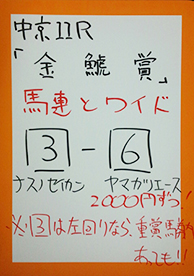 中京11R
「金鯱賞」
馬連とワイド
3-6
ナスノセイカン ヤマカツエース
2000円ずつ!
※3は左回りなら、重賞馬券内
あっても!!